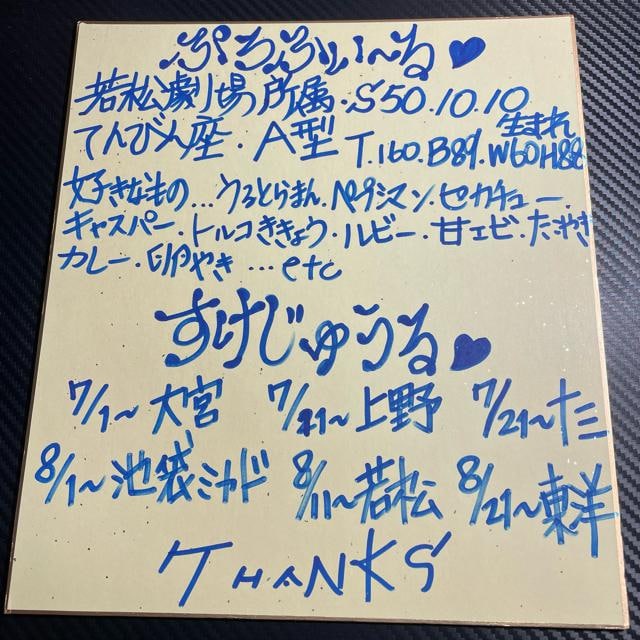 ぷろふぃ〜る♥
若松劇場所属・S50.10.10
生まれ
てんびん座・A型 T.160.B89.W60H88
好きなもの…うるとらまん・ペプシマン・セカチュー・
キャスパー・トルコききょう・ルビー・甘エビ・たやき
カレー・卵やき…etc
すけじゅうる♥
7/1〜大宮 7/11〜上野 7/21〜十三
8/1〜池袋ミカド 8/11〜若松 8/21〜東洋
THANKS